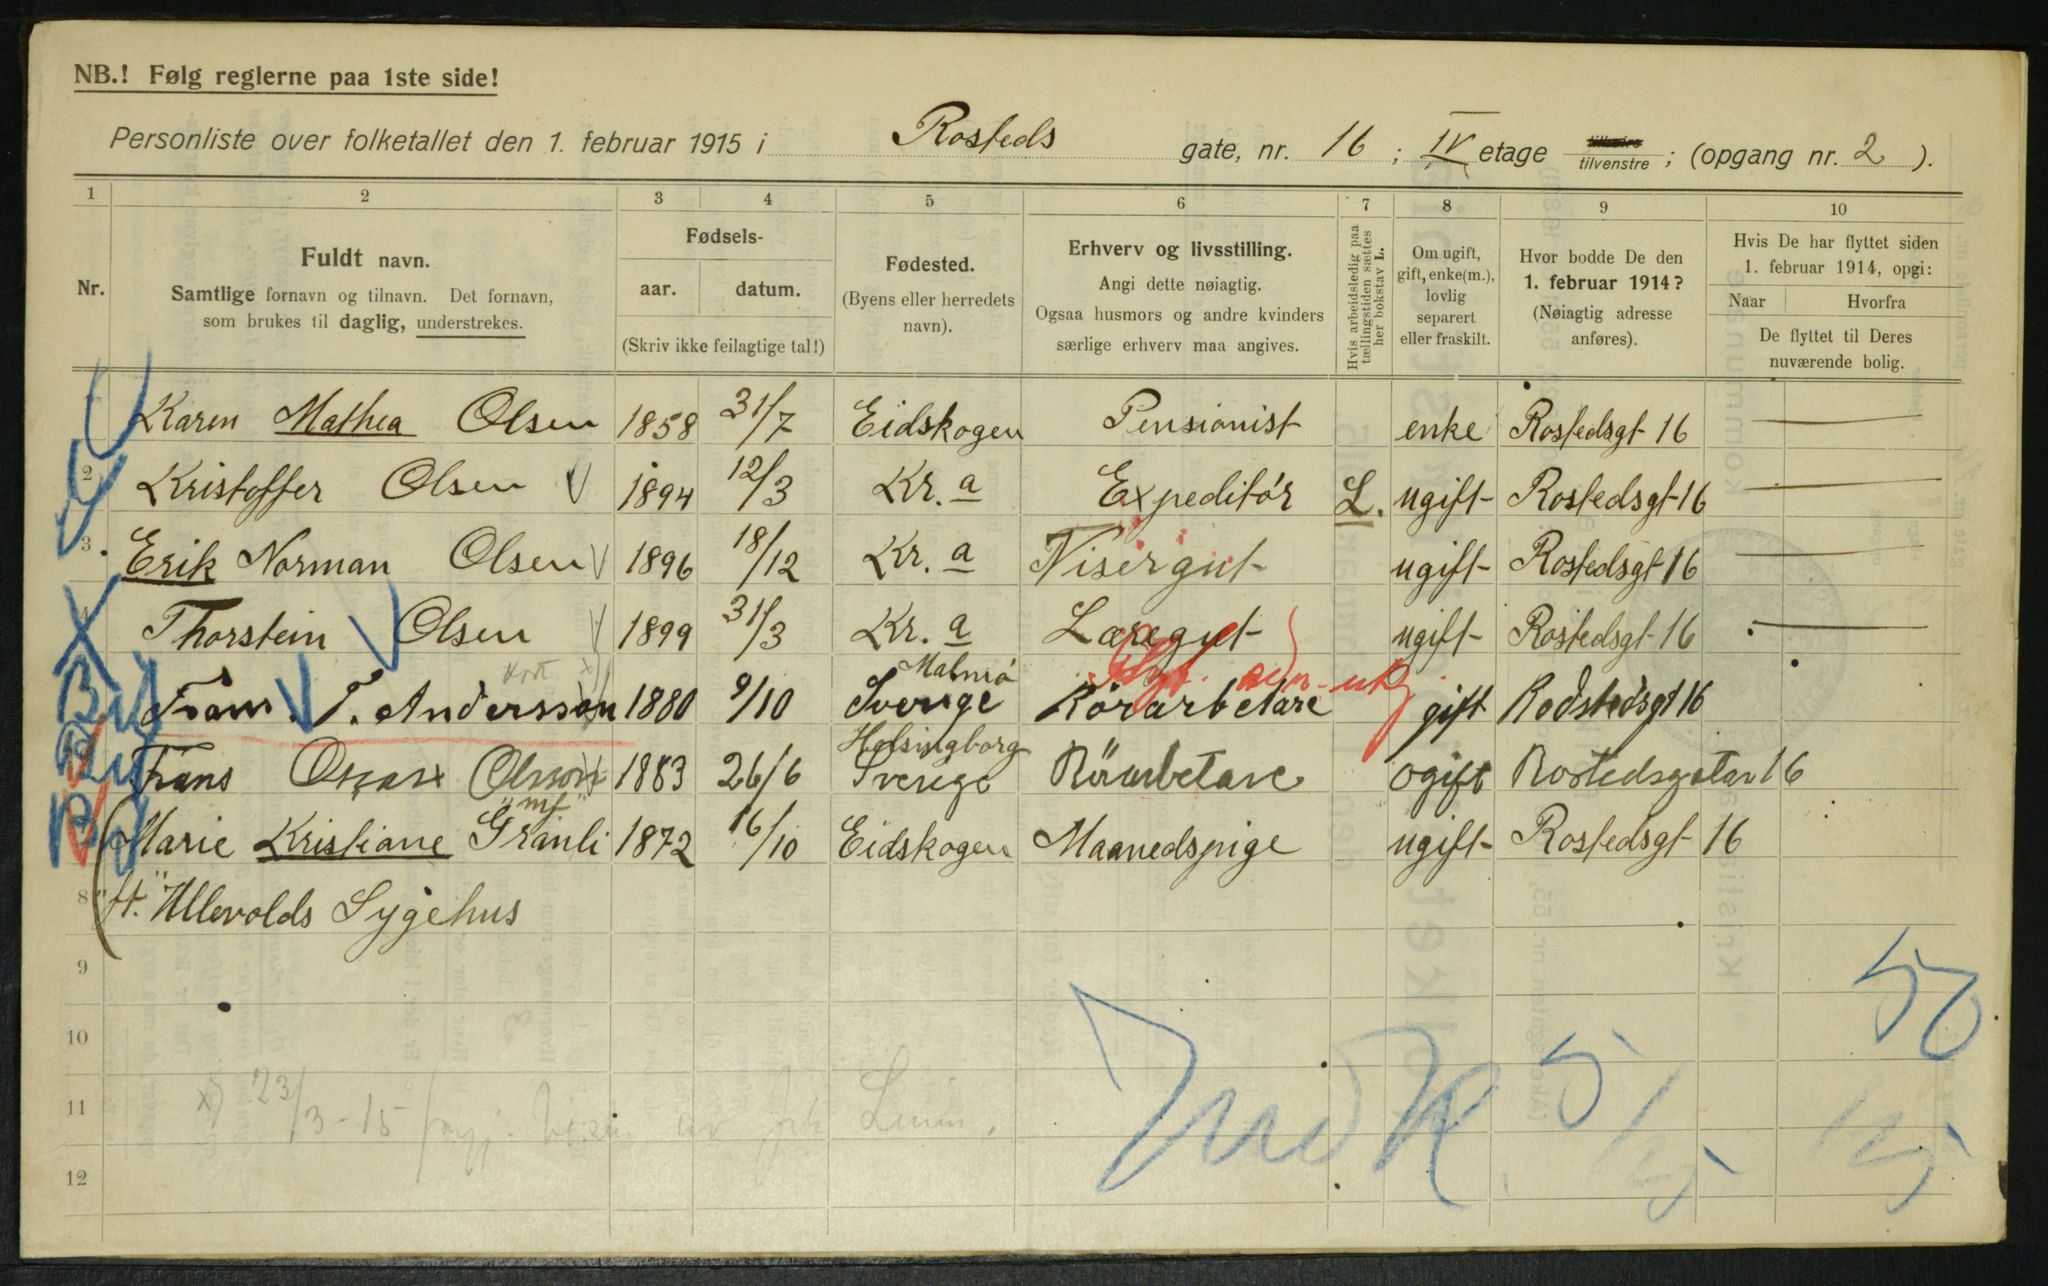 NB.! Følg reglerne paa 1ste side!
Personliste over folketallet den 1. februar 1915 i Rosteds gate, nr. 16 ; IV etage tilvenstre ; (opgang nr. 2 ).
1 2 3 4 5 6 7 8 9 10
Nr.
Fuldt navn.
Samtlige fornavn og tilnavn. Det fornavn,
som brukes til daglig, understrekes.
Fødsels-
aar. datum.
(Skriv ikke feilagtige tal!)
Fødested.
(Byens eller herredets
navn).
Erhverv og livsstilling.
Angi dette nøiagtig.
Ogsaa husmors og andre kvinders
særlige erhverv maa angives.
Hvis arbeidsledig paa
tællingstiden sættes
her bokstav L.
Om ugift,
gift, enke(m.),
lovlig
separert
eller fraskilt.
Hvor bodde De den
1. februar 1914?
(Nøiagtig adresse
anføres).
Hvis De har flyttet siden
1. februar 1914, opgi:
Naar Hvorfra
De flyttet til Deres
nuværende bolig.
Karen Mathea Olsen 1858 31/7 Eidskogen Pensionist enke Rostedsgt 16
2 Kristoffer Olsen 1894 12/3 Kr. a Expeditør L. ugift Rostedsgt 16
3 Erik Norman Olsen 1896 18/12 Kr. a Visergut ugift Rostedsgt 16
4 Thorstein Olsen 1899 31/3 Kr. a Læregut ugift Rostedsgt 16
Malmö
Frans. T. Andersson 1880 9/10 Sverige Rörarbetare gift Rodstedsgt 16
Helsingborg
Frans Oscar Olsson 1883 26/6 Sverige Rörarbetare ogift Rostedsgatan 16
"mf"
Marie Kristiane Granli 1872 16/10 Eidskogen Maanedspige ugift Rostedsgt 16
8 "ft." Ullevolds Sygehus
9
10
11 x) 23/3-15
12
50
5